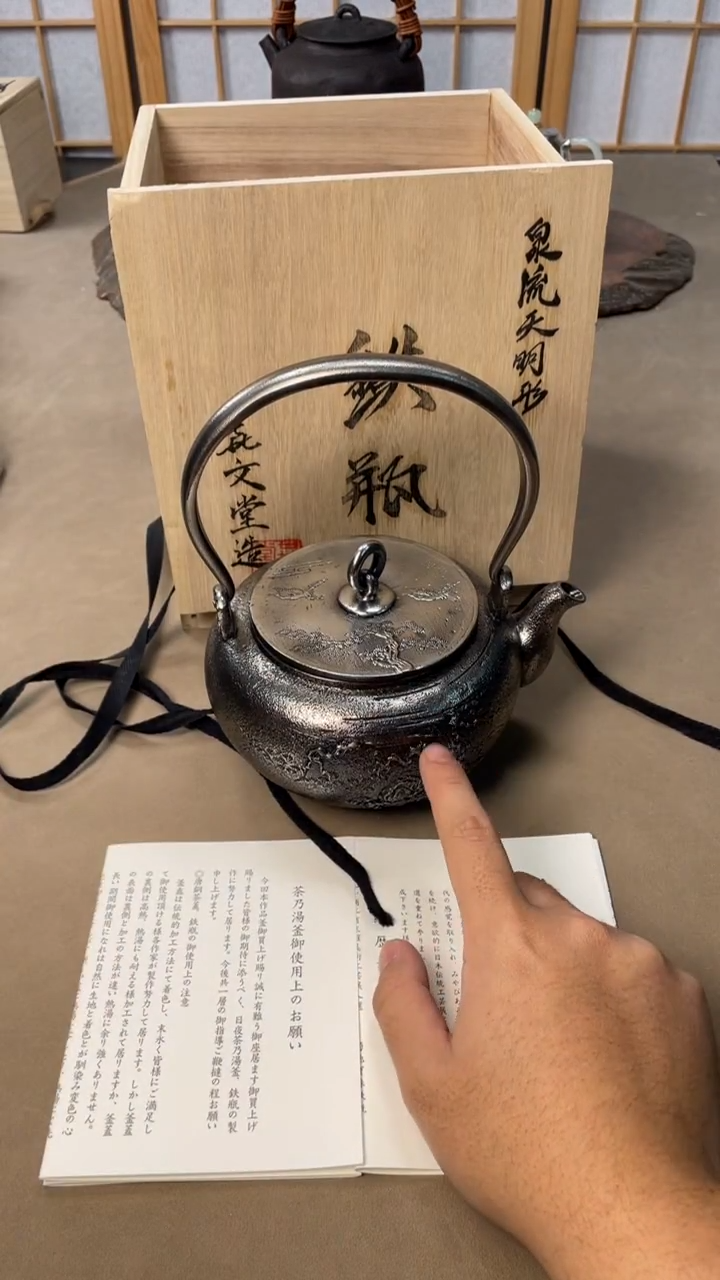 泉流天明形
鉄瓶
㐂文堂造
代の感覚を取り入れ、みやびあ
を続け、意欲的に日本伝統工芸展
道を重ねて参りま
成下さいます様
茶乃湯釜御使用上のお願い
今回本作品釜御買上げ賜り誠に有難う御座居ます御買上げ
賜りました皆様の御期待に添うべく、日夜茶乃湯釜、鉄瓶の製
作に努力して居ります。今後共一層の御指導ご鞭撻の程お願い
申し上げます。
◎唐銅茶蓋、鉄瓶の御使用上の注意
釜蓋は伝統的加工方法にて着色し、末永く皆様にご満足し
て御使用頂ける様各作家が製作努力して居ります。しかし釜蓋
の裏側は高熱、熱湯にも耐える様加工されて居りますが、釜蓋
の表面は裏側と加工の方法が違い熱湯に余り強くありません。
長い期間御使用になれば自然に生地と着色とが馴染み変色の心